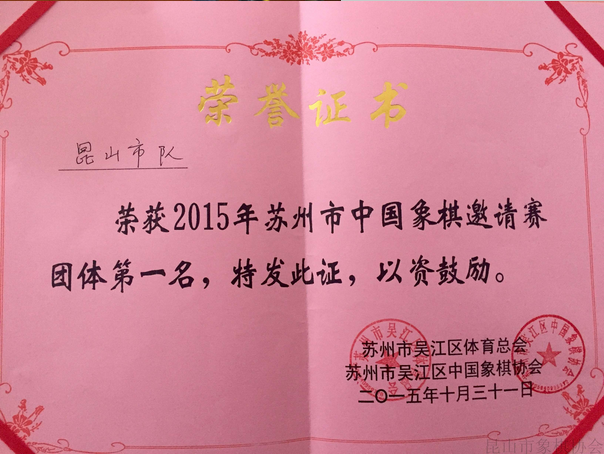 荣誉证书
昆山市队
荣获2015年苏州市中国象棋邀请赛
团体第一名，特发此证，以资鼓励。
苏州市吴江区体育总会
苏州市吴江区中国象棋协会
二〇一五年十月三十一日
昆山市象棋协会